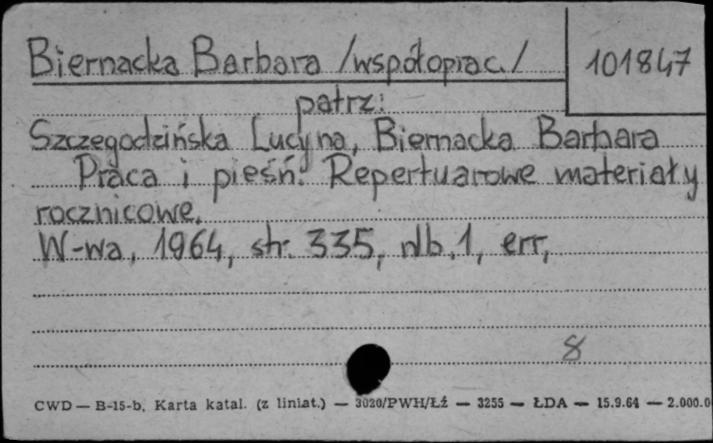 Biernacka Barbara /współoprac./ 101847
patrz:
Szczegodzińska Lucyna, Biernacka Barbara
Praca i pieśń. Repertuarowe materiały
rocznicowe.
W-wa, 1964, str. 335, nlb. 1, err,
8
CWD — B-15-b. Karta katal. (z liniat.) — 3020/PWH/Łź — 3255 — ŁDA — 15.9.64 — 2.000.0